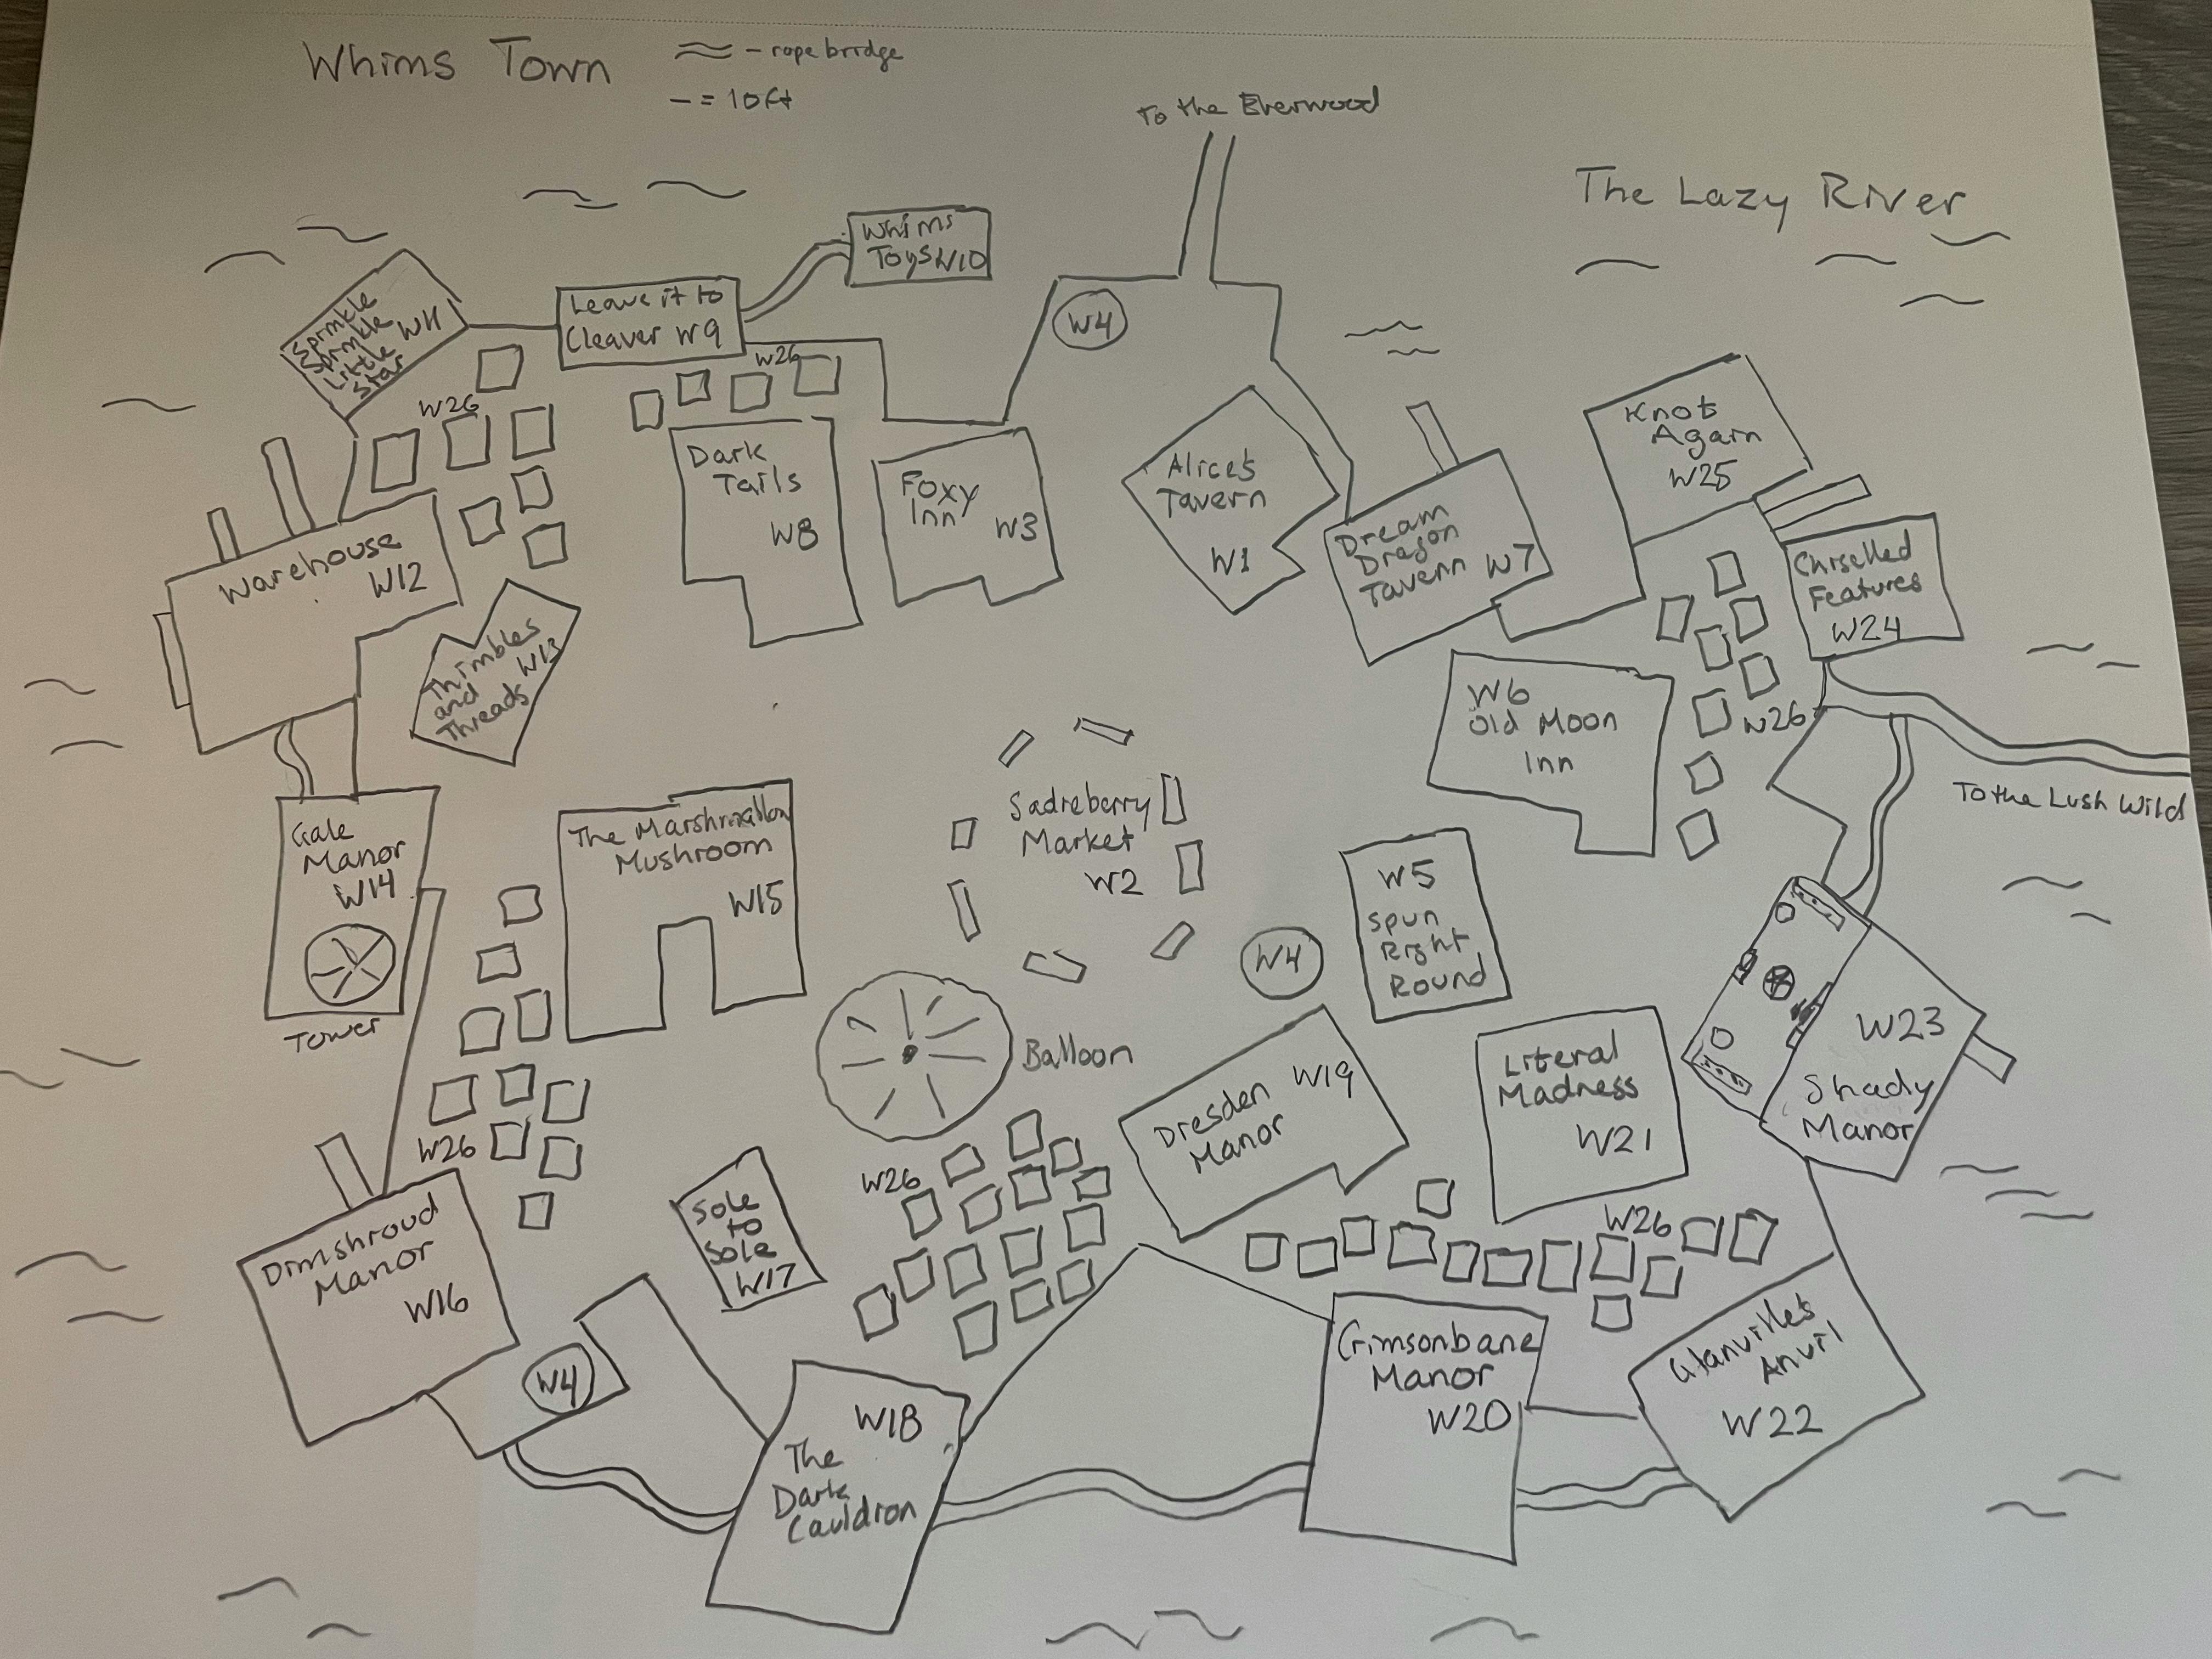 Whims Town
- rope bridge
- = 10ft
To the Everwood
The Lazy River
Whims
Toys W10
Leave it to
Cleaver W9
Sprinkle
Sprinkle
Little W11
Star
W4
W26
W26
Dark
Tails
W8
Foxy
Inn W3
Alice's
Tavern
W1
Dream
Dragon
Tavern W7
Knot
Again
W25
Chiselled
Features
W24
Warehouse
W12
Thimbles
and W13
Threads
W6
Old Moon
Inn
W26
To the Lush Wild
Gale
Manor
W14
Tower
The Marshmallow
Mushroom
W15
Market
W2
W5
Spun
Right
Round
W4
Balloon
W23
Shady
Manor
Literal
Madness
W21
Dresden W19
Manor
W26
W26
Dimshroud
Manor
W16
Sole
to
Sole
W17
W26
W4
W18
The
Dark
Cauldron
Crimsonbane
Manor
W20
Anvil
W22